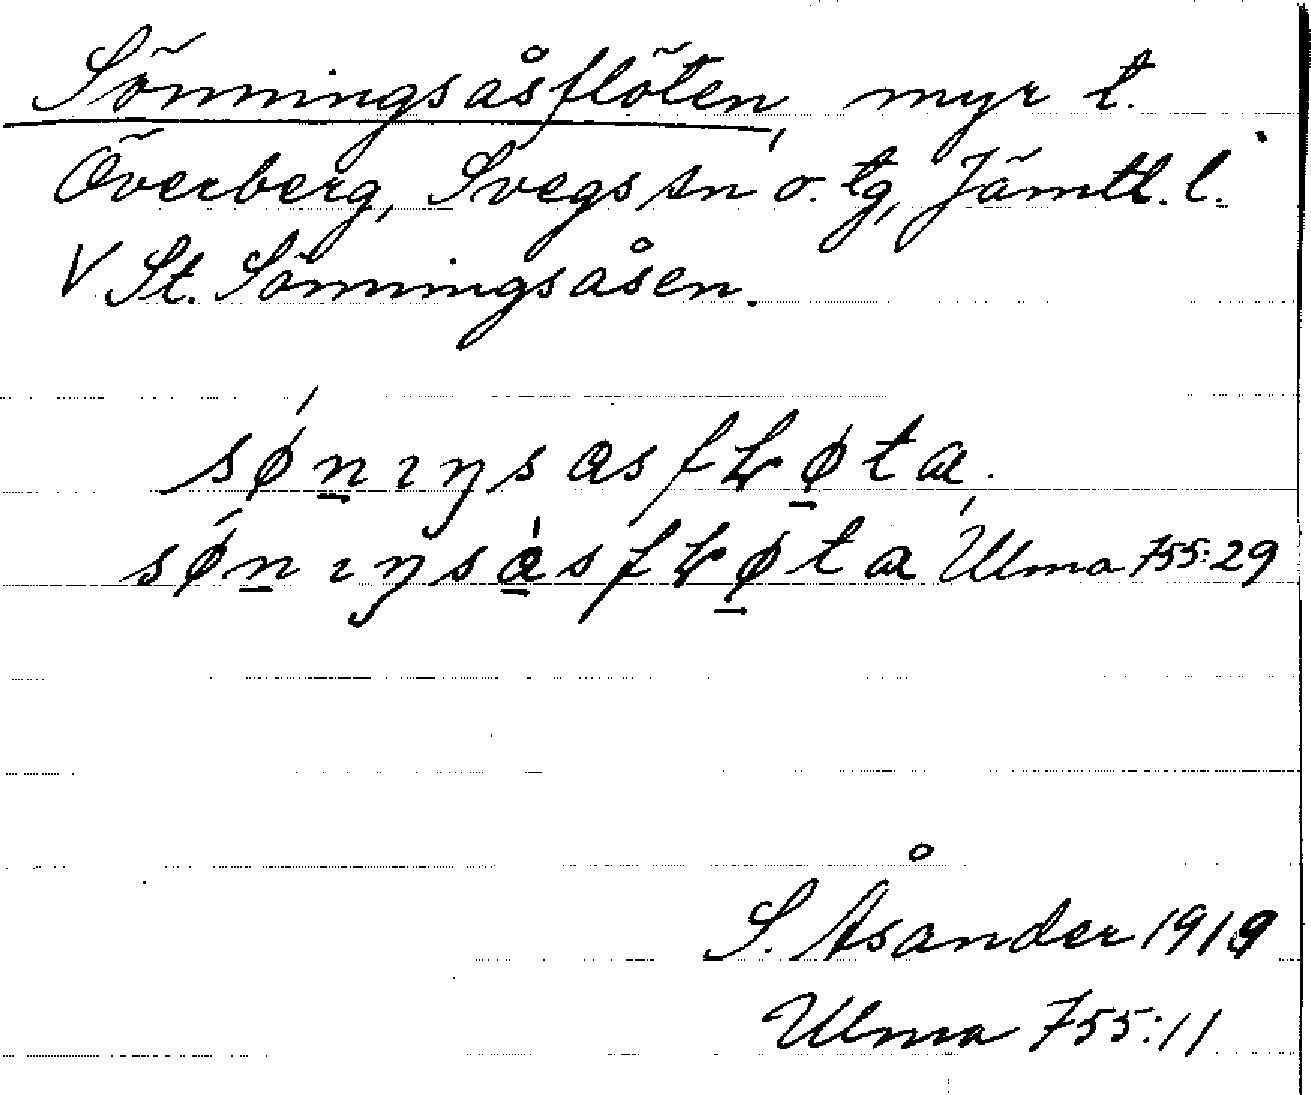 Sönningsåsflöten, myr t.
Överberg, Svegs sn o. tg, Jämtl. l.
V St. Sönningsåsen.
sǿn̲ıŋsasfⱡø̲ta.
sǿn̲ıŋsà̲sfⱡø̲ta, Ulma 755:29
S. Åsander 1919
Ulma 755:11